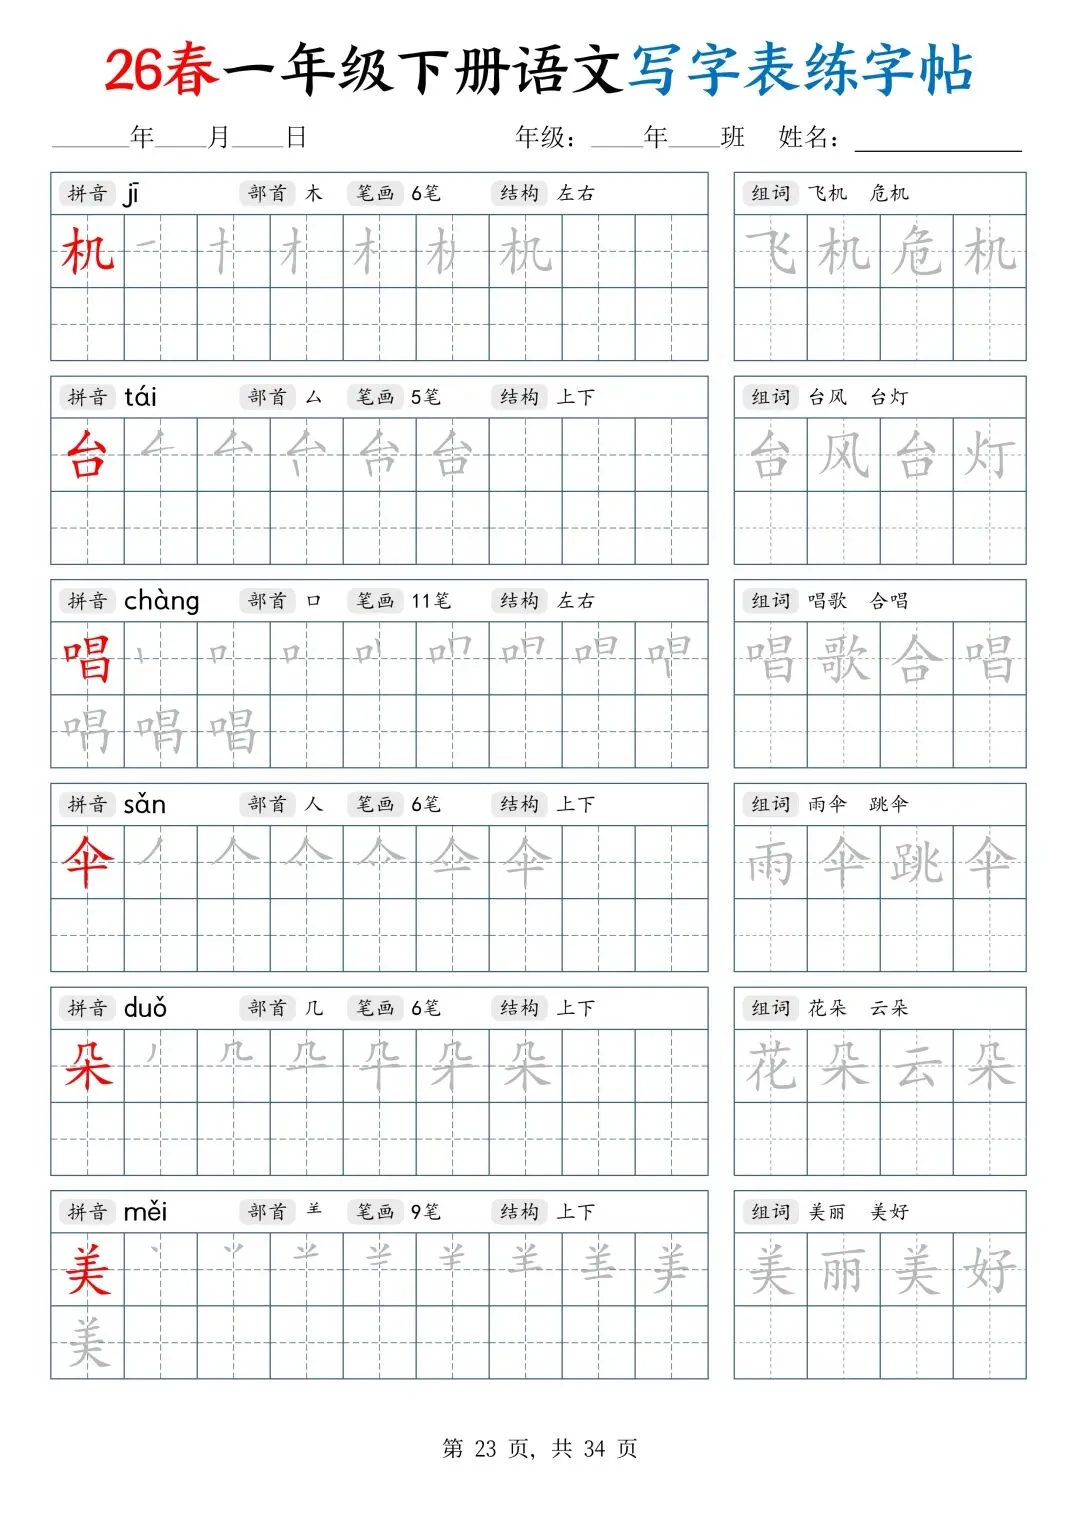 26春一年级下册语文写字表练字帖
______年____月____日 年级：____年____班 姓名：____________
拼音 jī 部首 木 笔画 6笔 结构 左右 组词 飞机 危机
机 机 飞机危机
拼音 tái 部首 厶 笔画 5笔 结构 上下 组词 台风 台灯
台 台 台风台灯
拼音 chàng 部首 口 笔画 11笔 结构 左右 组词 唱歌 合唱
唱 唱歌合唱
唱
拼音 sǎn 部首 人 笔画 6笔 结构 上下 组词 雨伞 跳伞
伞 伞 雨伞跳伞
拼音 duǒ 部首 几 笔画 6笔 结构 上下 组词 花朵 云朵
朵 朵 花朵云朵
拼音 měi 部首 𦍌 笔画 9笔 结构 上下 组词 美丽 美好
美 美丽美好
美
第 23 页，共 34 页